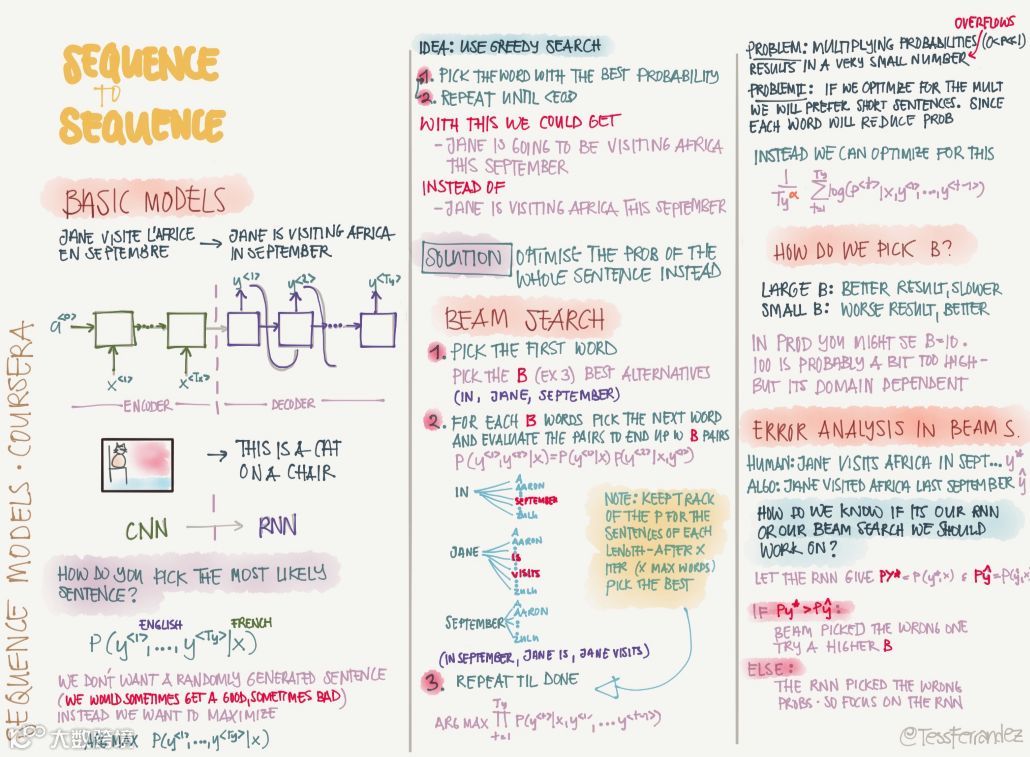 SEQUENCE
TO
SEQUENCE
BASIC MODELS
JANE VISITE L'AFRICE
EN SEPTEMBRE
→ JANE IS VISITING AFRICA
IN SEPTEMBER
y<1> y<2> y<Ty>
a<0>
x<1> x<Tx>
ENCODER DECODER
→ THIS IS A CAT
ON A CHAIR
CNN → RNN
HOW DO YOU PICK THE MOST LIKELY
SENTENCE?
ENGLISH FRENCH
P(y<1>,...,y<Ty>|x)
WE DON'T WANT A RANDOMLY GENERATED SENTENCE
(WE WOULD SOMETIMES GET A GOOD, SOMETIMES BAD)
INSTEAD WE WANT TO MAXIMIZE
ARG MAX P(y<1>,...,y<Ty>|x)
SEQUENCE MODELS · COURSERA
大数跨境
IDEA: USE GREEDY SEARCH
1. PICK THE WORD WITH THE BEST PROBABILITY
2. REPEAT UNTIL <EOD
WITH THIS WE COULD GET
- JANE IS GOING TO BE VISITING AFRICA
THIS SEPTEMBER
INSTEAD OF
- JANE IS VISITING AFRICA THIS SEPTEMBER
SOLUTION OPTIMISE THE PROB OF THE
WHOLE SENTENCE INSTEAD
BEAM SEARCH
1. PICK THE FIRST WORD
PICK THE B (EX 3) BEST ALTERNATIVES
(IN, JANE, SEPTEMBER)
2. FOR EACH B WORDS PICK THE NEXT WORD
AND EVALUATE THE PAIRS TO END UP W B PAIRS
P(y<1>,y<2>|x)=P(y<1>|x) P(y<2>|x,y<1>)
A
AARON
IN SEPTEMBER
ZULU
A
AARON
JANE IS
VISITS
ZULU
A
AARON
SEPTEMBER
ZULU
NOTE: KEEP TRACK
OF THE P FOR THE
SENTENCES OF EACH
LENGTH - AFTER X
ITER (X MAX WORDS)
PICK THE BEST
(IN SEPTEMBER, JANE IS, JANE VISITS)
3. REPEAT TIL DONE
ARG MAX ∏ P(y<t>|x,y<1>,...y<t-1>)
Ty
t=1
OVERFLOWS
PROBLEM: MULTIPLYING PROBABILITIES (0<P<1)
RESULTS IN A VERY SMALL NUMBER
PROBLEM II: IF WE OPTIMIZE FOR THE MULT
WE WILL PREFER SHORT SENTENCES. SINCE
EACH WORD WILL REDUCE PROB
INSTEAD WE CAN OPTIMIZE FOR THIS
1/Ty^α Σ log(P<t>|x,y<1>,...,y<t-1>)
Ty
t=1
HOW DO WE PICK B?
LARGE B: BETTER RESULT, SLOWER
SMALL B: WORSE RESULT, BETTER
IN PROD YOU MIGHT SE B=10.
100 IS PROBABLY A BIT TOO HIGH -
BUT ITS DOMAIN DEPENDENT
ERROR ANALYSIS IN BEAM S.
HUMAN: JANE VISITS AFRICA IN SEPT... y*
ALGO: JANE VISITED AFRICA LAST SEPTEMBER ŷ
HOW DO WE KNOW IF ITS OUR RNN
OR OUR BEAM SEARCH WE SHOULD
WORK ON?
LET THE RNN GIVE Py*=P(y*,x) & Pŷ=P(ŷ,x)
IF Py*>Pŷ:
BEAM PICKED THE WRONG ONE
TRY A HIGHER B
ELSE:
THE RNN PICKED THE WRONG
PROBS - SO FOCUS ON THE RNN
@TessFerrandez